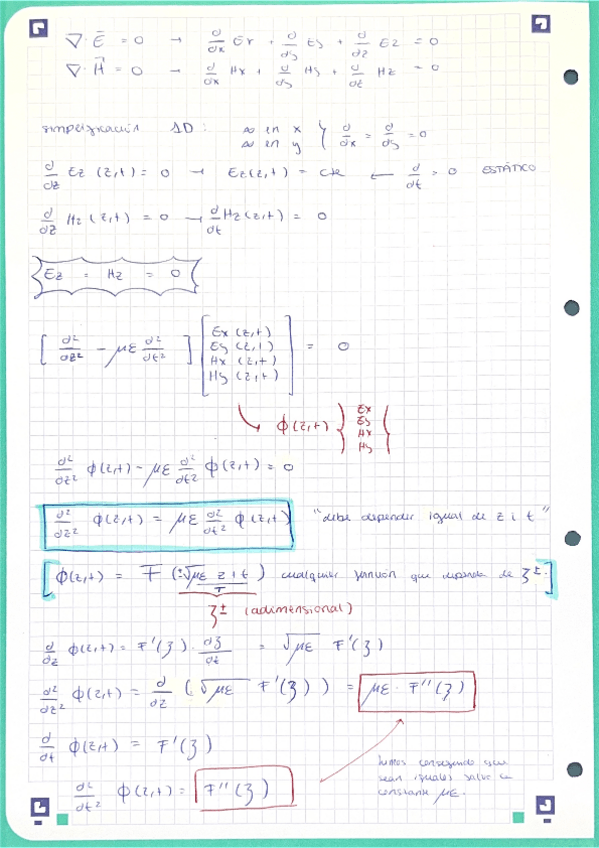 ∇·E⃗ = 0 → d/dx Ex + d/dy Ey + d/dz Ez = 0
∇·H⃗ = 0 → d/dx Hx + d/dy Hy + d/dz Hz = 0
simplificación 1D: ∞ en x } d/dx = d/dy = 0
∞ en y
d/dz Ez(z,t) = 0 → Ez(z,t) = cte ← d/dt = 0 ESTÁTICO
d/dz Hz(z,t) = 0 → d/dt Hz(z,t) = 0
Ez = Hz = 0
[d²/dz² - με d²/dt²] [Ex(z,t)
Ey(z,t)
Hx(z,t)
Hy(z,t)] = 0
ϕ(z,t) { Ex
Ey
Hx
Hy }
d²/dz² ϕ(z,t) - με d²/dt² ϕ(z,t) = 0
d²/dz² ϕ(z,t) = με d²/dt² ϕ(z,t) "debe depender igual de z i t"
ϕ(z,t) = F(±√με z ± t) cualquier función que dependa de ζ±
ζ± (adimensional)
d/dz ϕ(z,t) = F'(ζ) · dζ/dt = √με F'(ζ)
d²/dz² ϕ(z,t) = d/dz (√με F'(ζ)) = με · F''(ζ)
d/dt ϕ(z,t) = F'(ζ)
d²/dt² ϕ(z,t) = F''(ζ)
hemos conseguido que
sean iguales salvo
constante με.